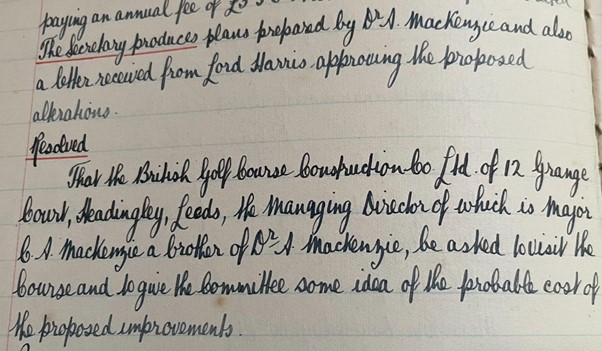 paying an annual fee of £5
The Secretary produces plans prepared by Dr A. Mackenzie and also
a letter received from Lord Harris approving the proposed
alterations.
Resolved
That the British Golf Course Construction Co Ltd. of 12 Grange
Court, Headingley, Leeds, the Managing Director of which is Major
C. A. Mackenzie a brother of Dr A Mackenzie, be asked to visit the
Course and to give the Committee some idea of the probable cost of
the proposed improvements.